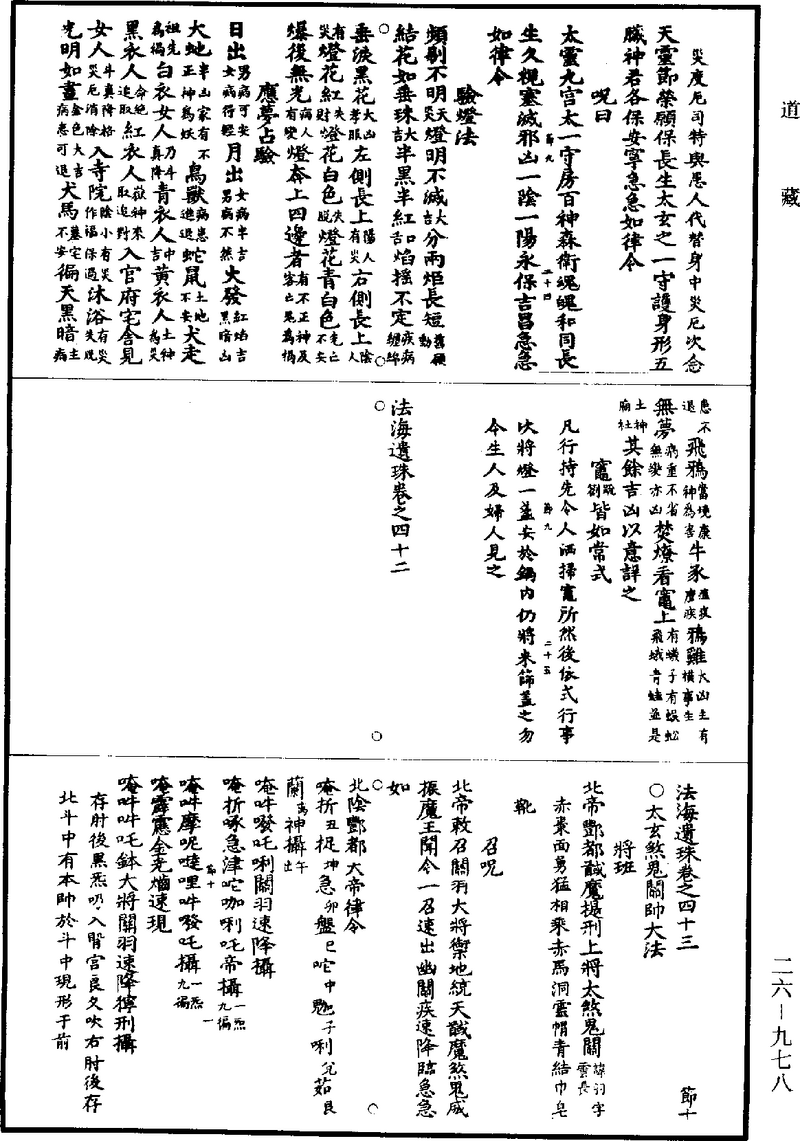 道藏
災度厄司特與愚人代替身中災厄次念
天靈節榮願保長生太玄之一守護身形五
臟神君各保安寧急急如律令
呪曰
太靈九宮太一守房百神森衛魂魄和同長
生久視塞滅邪凶一陰一陽永保吉昌急急
如律令
驗燈法
頻剔不明天災燈明不滅大吉分兩炬長短舊願動
結花如垂珠大吉半黑半紅口舌焰搖不定疾病纏綿
垂淚黑花大凶孝服左側長上陽人有災右側長上陰人
有災燈花紅失財燈花白色失脫燈花青白色先亡不安
爆後無光病人有變燈奔上四邊者有不正神及客亡鬼為禍
應夢占驗
日出男病可安女病得輕月出女病半吉男病不然火發紅焰吉黑暗凶
大地半凶家有不正神為妖鳥獸病患進退蛇鼠土地不安犬走
祖先為禍白衣女人乃斗真降青衣人中吉黃衣人土神為災
黑衣人命絕追取紅衣人嶽神來取追對入官府宅舍見
女人斗真降格災厄消除入寺院陰小有災作福保過沐浴有災失脫
光明如晝金色大吉病患可退犬馬墓宅不安徧天黑暗主病
患不退飛鴉當境廟神為害牛豕瘟疫瘴疾鴉雞大凶主有橫事生
無夢病重不省無變亦凶焚燎看竈上有蟻子有蜈蚣飛蛾青蛙並是
土神廟社其餘吉凶以意詳之
竈䟽劄皆如常式
凡行持先令人洒掃竈所然後依式行事
次將燈一盞安於鍋內仍將米篩蓋之勿
令生人及婦人見之
法海遺珠卷之四十二
法海遺珠卷之四十三
太玄煞鬼關帥大法
將班
北帝酆都馘魔攝刑上將太煞鬼關諱羽字雲長
赤棗面勇猛相乘赤馬洞雲帽青結巾皂
靴
召呪
北帝敕召關羽大將禦地統天馘魔煞鬼威
振魔王聞令一召速出幽關疾速降臨急急
如
北陰酆都大帝律令
唵折丑捉坤急卯盤巳咜中 子唎兊茹艮
蘭 神攝午出
唵吽發吒唎關羽速降攝
唵折啄急津咜咖唎吒帝攝一炁九徧
唵吽摩呢噠哩吽發吒攝一炁九徧
唵霹靂應金光熵速現
唵吽吽吒鉢大將關羽速降擰刑攝
存肘後黑炁吸入腎宮良久吹右肘後存
北斗中有本帥於斗中現形于前
節九 二十四
節九 二十五
節十 一
節十
二六－九七八